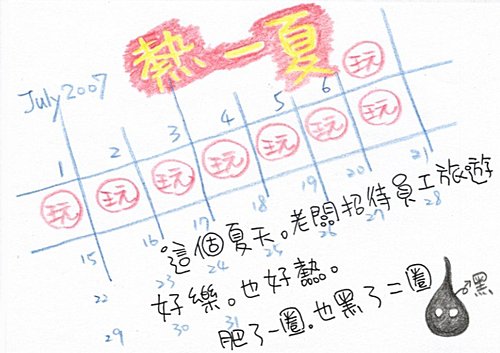 熱一夏
July 2007
1 2 3 4 5 6 玩
玩 玩 玩 玩 玩 玩 玩
15 16 17 18 19 20 21
22 23 24 25 26 27 28
29 30 31
這個夏天。老闆招待員工旅遊
好樂。也好熱。
肥了一圈.也黑了二圈
黑